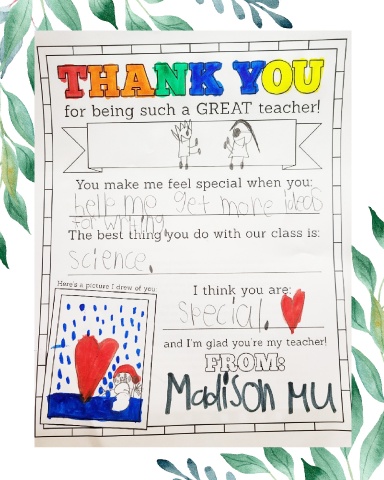 THANK YOU
for being such a GREAT teacher!
You make me feel special when you:
help me get more ideas
for writing.
The best thing you do with our class is:
science.
Here's a picture I drew of you:
I think you are:
special.
and I'm glad you're my teacher!
FROM:
Madison MU